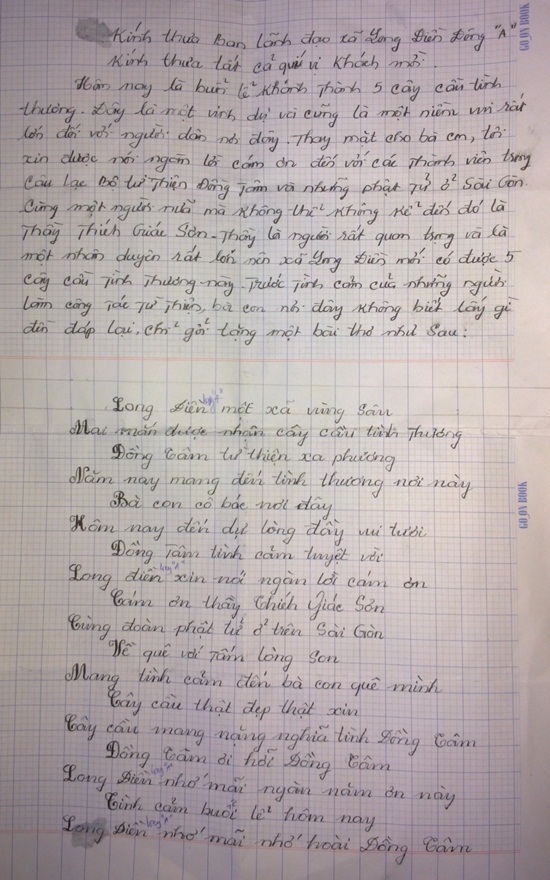 Kính thưa Ban lãnh đạo xã Long Điền Đông "A"
Kính thưa tất cả quý vị khách mời.
Hôm nay là buổi lể khánh thành 5 cây cầu tình
thương. Đây là một vinh dự và cũng là một niềm vui rất
lớn đối với người dân nơi đây. Thay mặt cho bà con, tôi
xin được nói ngàn lời cám ơn đến với các thành viên trong
Câu lạc Bộ từ Thiện Đồng Tâm và những phật Tử ở Sài Gòn.
Cùng một người nữa mà không thể không kể đến đó là
Thầy Thích Giác Sơn. Thầy là người rất quan trọng và là
một nhân duyên rất lớn nên xã Long Điền mới có được 5
cây cầu Tình Thương này. Trước Tình cảm của những người
làm công Tác Từ Thiện, bà con nơi đây không biết lấy gì
đền đáp lại, chỉ gởi tặng một bài thơ như sau:
Long Điền một xã vùng sâu
Mai mắn được nhận cây cầu tình thương
Đồng Tâm từ thiện xa phương
Năm nay mang đến tình thương nơi này
Bà con cô bác nơi đây
Hôm nay đến dự lòng đầy vui tươi
Đồng Tâm tình cảm tuyệt vời
Long điền xin nói ngàn lời cám ơn
Cám ơn thầy Thích Giác Sơn
Cùng đoàn phật tử ở trên Sài Gòn
Về quê với Tấm lòng son
Mang tình cảm đến bà con quê mình
Cây cầu thật đẹp thật xin
Cây cầu mang nặng nghĩa tình Đồng Tâm
Đồng Tâm ơi hỡi Đồng Tâm
Long Điền nhớ mãi ngàn năm ơn này
Tình cảm buổi lể hôm nay
Long Điền nhớ mãi nhớ hoài Đồng Tâm
GO_ON BOOK
GO_ON BOOK